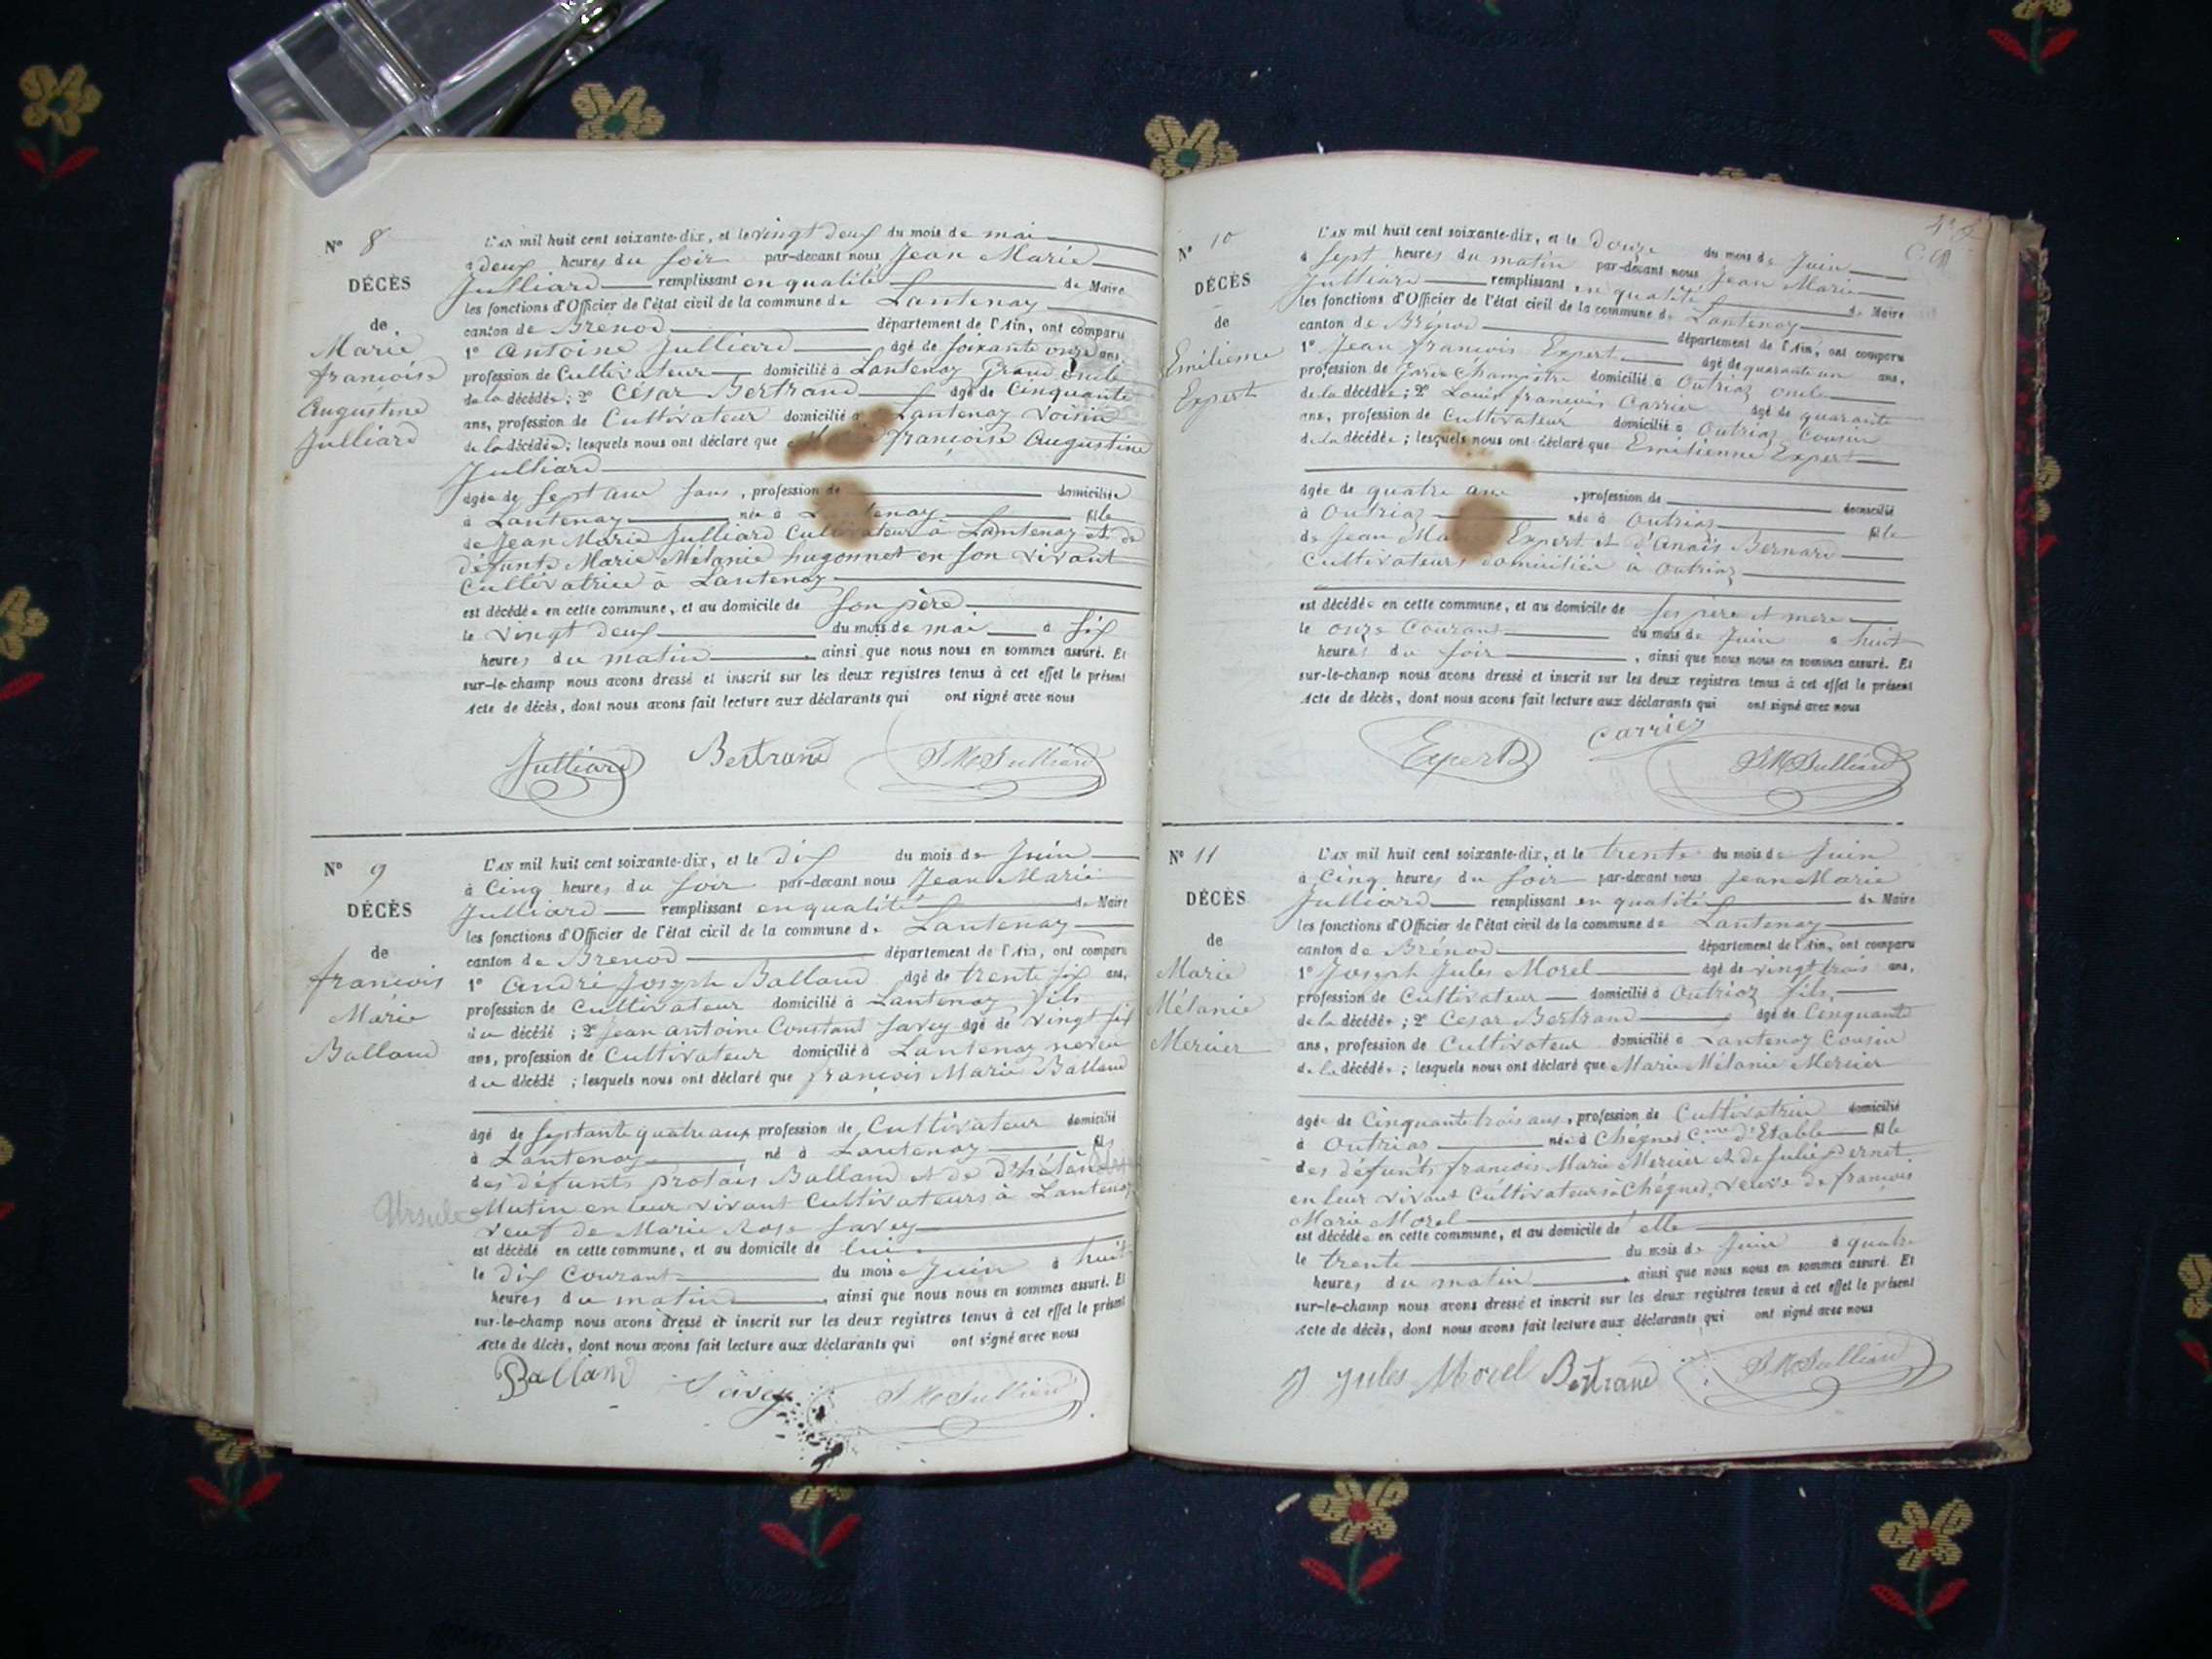 N° 8
DÉCÈS
de
Marie
françoise
Augustine
Julliard
L'AN mil huit cent soixante-dix, et le vingt deux du mois de mai
à deux heures du soir par-devant nous Jean Marie
Julliard remplissant en qualité de Maire
les fonctions d'Officier de l'état civil de la commune de Lantenay
canton de Brenod département de l'Ain, ont comparu
1° Antoine Julliard âgé de soixante onze ans,
profession de Cultivateur domicilié à Lantenay Grand oncle
de la décédée; 2° César Bertrand âgé de Cinquante
ans, profession de Cultivateur domicilié à Lantenay Voisin
de la décédée; lesquels nous ont déclaré que françoise Augustine
Julliard
âgée de sept ans , profession de domiciliée
à Lantenay née à Lantenay fille
de Jean Marie Julliard Cultivateur à Lantenay et de
défunte Marie Mélanie hugonnet en son vivant
Cultivatrice à Lantenay
est décédée en cette commune, et au domicile de son père
le vingt deux du mois de mai à six
heures du matin , ainsi que nous nous en sommes assuré. Et
sur-le-champ nous avons dressé et inscrit sur les deux registres tenus à cet effet le présent
acte de décès, dont nous avons fait lecture aux déclarants qui ont signé avec nous
Julliard Bertrand J M Julliard
N° 9
DÉCÈS
de
françois
Marie
Balland
L'AN mil huit cent soixante-dix, et le dix du mois de Juin
à Cinq heures du soir par-devant nous Jean Marie
Julliard remplissant en qualité de Maire
les fonctions d'Officier de l'état civil de la commune de Lantenay
canton de Brenod département de l'Ain, ont comparu
1° André Joseph Balland âgé de trente six ans,
profession de Cultivateur domicilié à Lantenay fils
du décédé ; 2° Jean antoine Constant Savey âgé de vingt six
ans, profession de Cultivateur domicilié à Lantenay neveu
du décédé ; lesquels nous ont déclaré que françois Marie Balland
âgé de septante quatre ans profession de Cultivateur domicilié
à Lantenay né à Lantenay fils
des défunts protais Balland et de d'hélène
Ursule Mutin en leur vivant Cultivateurs à Lantenay
veuf de Marie Rose Savey
est décédé en cette commune, et au domicile de lui
le dix Courant du mois de Juin à huit
heures du matin , ainsi que nous nous en sommes assuré. Et
sur-le-champ nous avons dressé et inscrit sur les deux registres tenus à cet effet le présent
acte de décès, dont nous avons fait lecture aux déclarants qui ont signé avec nous
Balland Savey J M Julliard
N° 10
DÉCÈS
de
Emilienne
Expert
L'AN mil huit cent soixante-dix, et le douze du mois de Juin
à sept heures du matin par-devant nous Jean Marie
Julliard remplissant en qualité de Maire
les fonctions d'Officier de l'état civil de la commune de Lantenay
canton de Brénod département de l'Ain, ont comparu
1° Jean françois Expert âgé de quarante un ans,
profession de Garde Champêtre domicilié à Outriaz oncle
de la décédée; 2° Louis françois Carrier âgé de quarante
ans, profession de Cultivateur domicilié à Outriaz Cousin
de la décédée ; lesquels nous ont déclaré que Emilienne Expert
âgée de quatre ans , profession de domicilié
à Outriaz née à Outriaz fille
de Jean Marie Expert et d'Anaïs Bernard
Cultivateurs domiciliés à Outriaz
est décédée en cette commune, et au domicile de ses père et mère
le onze Courant du mois de Juin à huit
heures du soir , ainsi que nous nous en sommes assuré. Et
sur-le-champ nous avons dressé et inscrit sur les deux registres tenus à cet effet le présent
acte de décès, dont nous avons fait lecture aux déclarants qui ont signé avec nous
Expert Carrier J M Julliard
N° 11
DÉCÈS
de
Marie
Mélanie
Mercier
L'AN mil huit cent soixante-dix, et le trente du mois de Juin
à Cinq heures du soir par-devant nous Jean Marie
Julliard remplissant en qualité de Maire
les fonctions d'Officier de l'état civil de la commune de Lantenay
canton de Brénod département de l'Ain, ont comparu
1° Joseph Jules Morel âgé de vingt trois ans,
profession de Cultivateur domicilié à Outriaz fils
de la décédée; 2° Cesar Bertrand âgé de Cinquante
ans, profession de Cultivateur domicilié à Lantenay Cousin
de la décédée ; lesquels nous ont déclaré que Marie Mélanie Mercier
âgée de Cinquante trois ans, profession de Cultivatrice domicilié
à Outriaz née à Chégnes Cne d'Etable fille
des défunts françois Marie Mercier et de Julie Pernet
en leur vivant Cultivateurs à Chégnes, veuve de françois
Marie Morel
est décédée en cette commune, et au domicile de elle
le trente du mois de Juin à quatre
heures du matin , ainsi que nous nous en sommes assuré. Et
sur-le-champ nous avons dressé et inscrit sur les deux registres tenus à cet effet le présent
acte de décès, dont nous avons fait lecture aux déclarants qui ont signé avec nous
J Jules Morel Bertrand J M Julliard